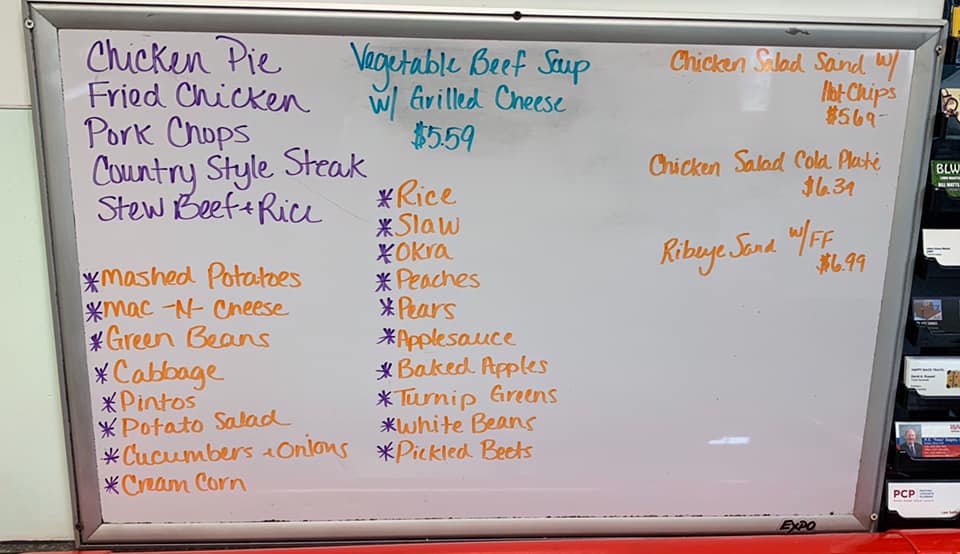 Chicken Pie
Fried Chicken
Pork Chops
Country Style Steak
Stew Beef + Rice
*Mashed Potatoes
*Mac -N- Cheese
*Green Beans
*Cabbage
*Pintos
*Potato Salad
*Cucumbers + Onions
*Cream Corn
Vegetable Beef Soup
w/ Grilled Cheese
$5.59
*Rice
*Slaw
*Okra
*Peaches
*Pears
*Applesauce
*Baked Apples
*Turnip Greens
*White Beans
*Pickled Beets
Chicken Salad Sand w/
Hot Chips
$5.69
Chicken Salad Cold Plate
$6.39
Ribeye Sand w/FF
$6.99
EXPO
BLW
PCP